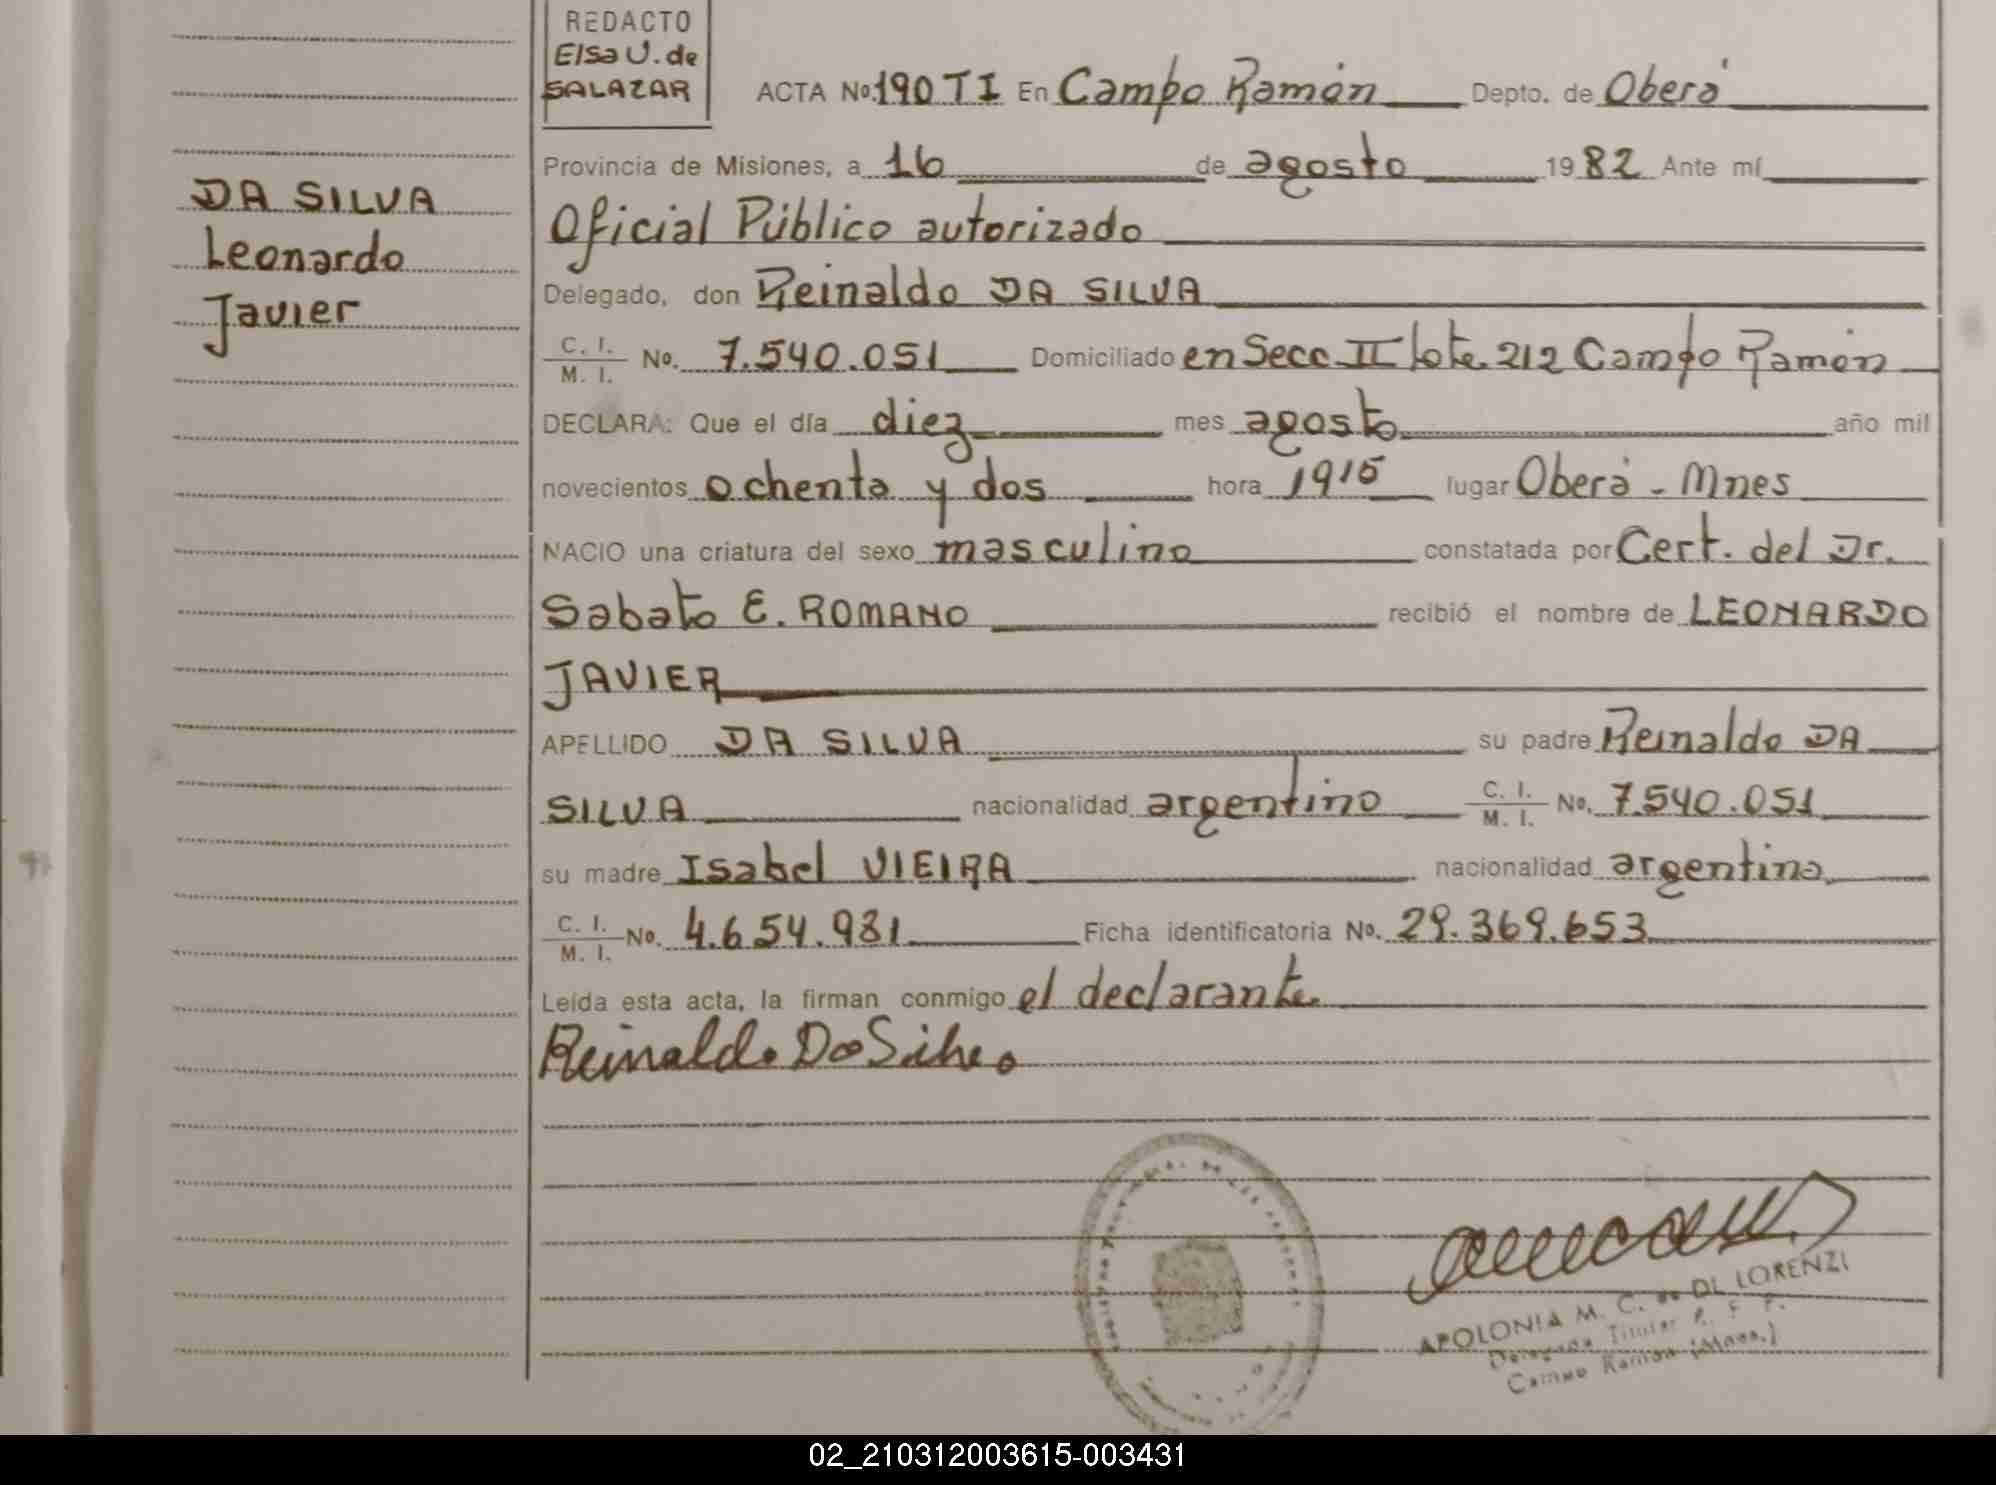 REDACTO
Elsa U. de
SALAZAR
ACTA No. 190 TI En Campo Ramón Depto. de Oberá
Provincia de Misiones, a 16 de agosto 1982 Ante mí
Oficial Público autorizado
Delegado, don Reinaldo DA SILVA
C. I.
M. I. No. 7.540.051 Domiciliado en Secc II lote 212 Campo Ramón
DECLARA: Que el día diez mes agosto año mil
novecientos ochenta y dos hora 1915 lugar Oberá - Mnes
NACIO una criatura del sexo masculino constatada por Cert. del Dr.
Sabato E. ROMANO recibió el nombre de LEONARDO
JAVIER
APELLIDO DA SILVA su padre Reinaldo DA
SILVA nacionalidad argentino C. I. M. I. No. 7.540.051
su madre Isabel VIEIRA nacionalidad argentina
C. I.
M. I. No. 4.654.931 Ficha identificatoria No. 29.369.653
Leída esta acta, la firman conmigo el declarante
Reinaldo Da Silva
DA SILVA
Leonardo
Javier
APOLONIA M. C. de DI LORENZI
Delegada Titular R.
Campo Ramón (Mnes.)
02_210312003615-003431